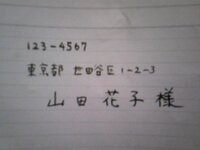 123-4567
東京都 世田谷区 1-2-3
山田 花子 様